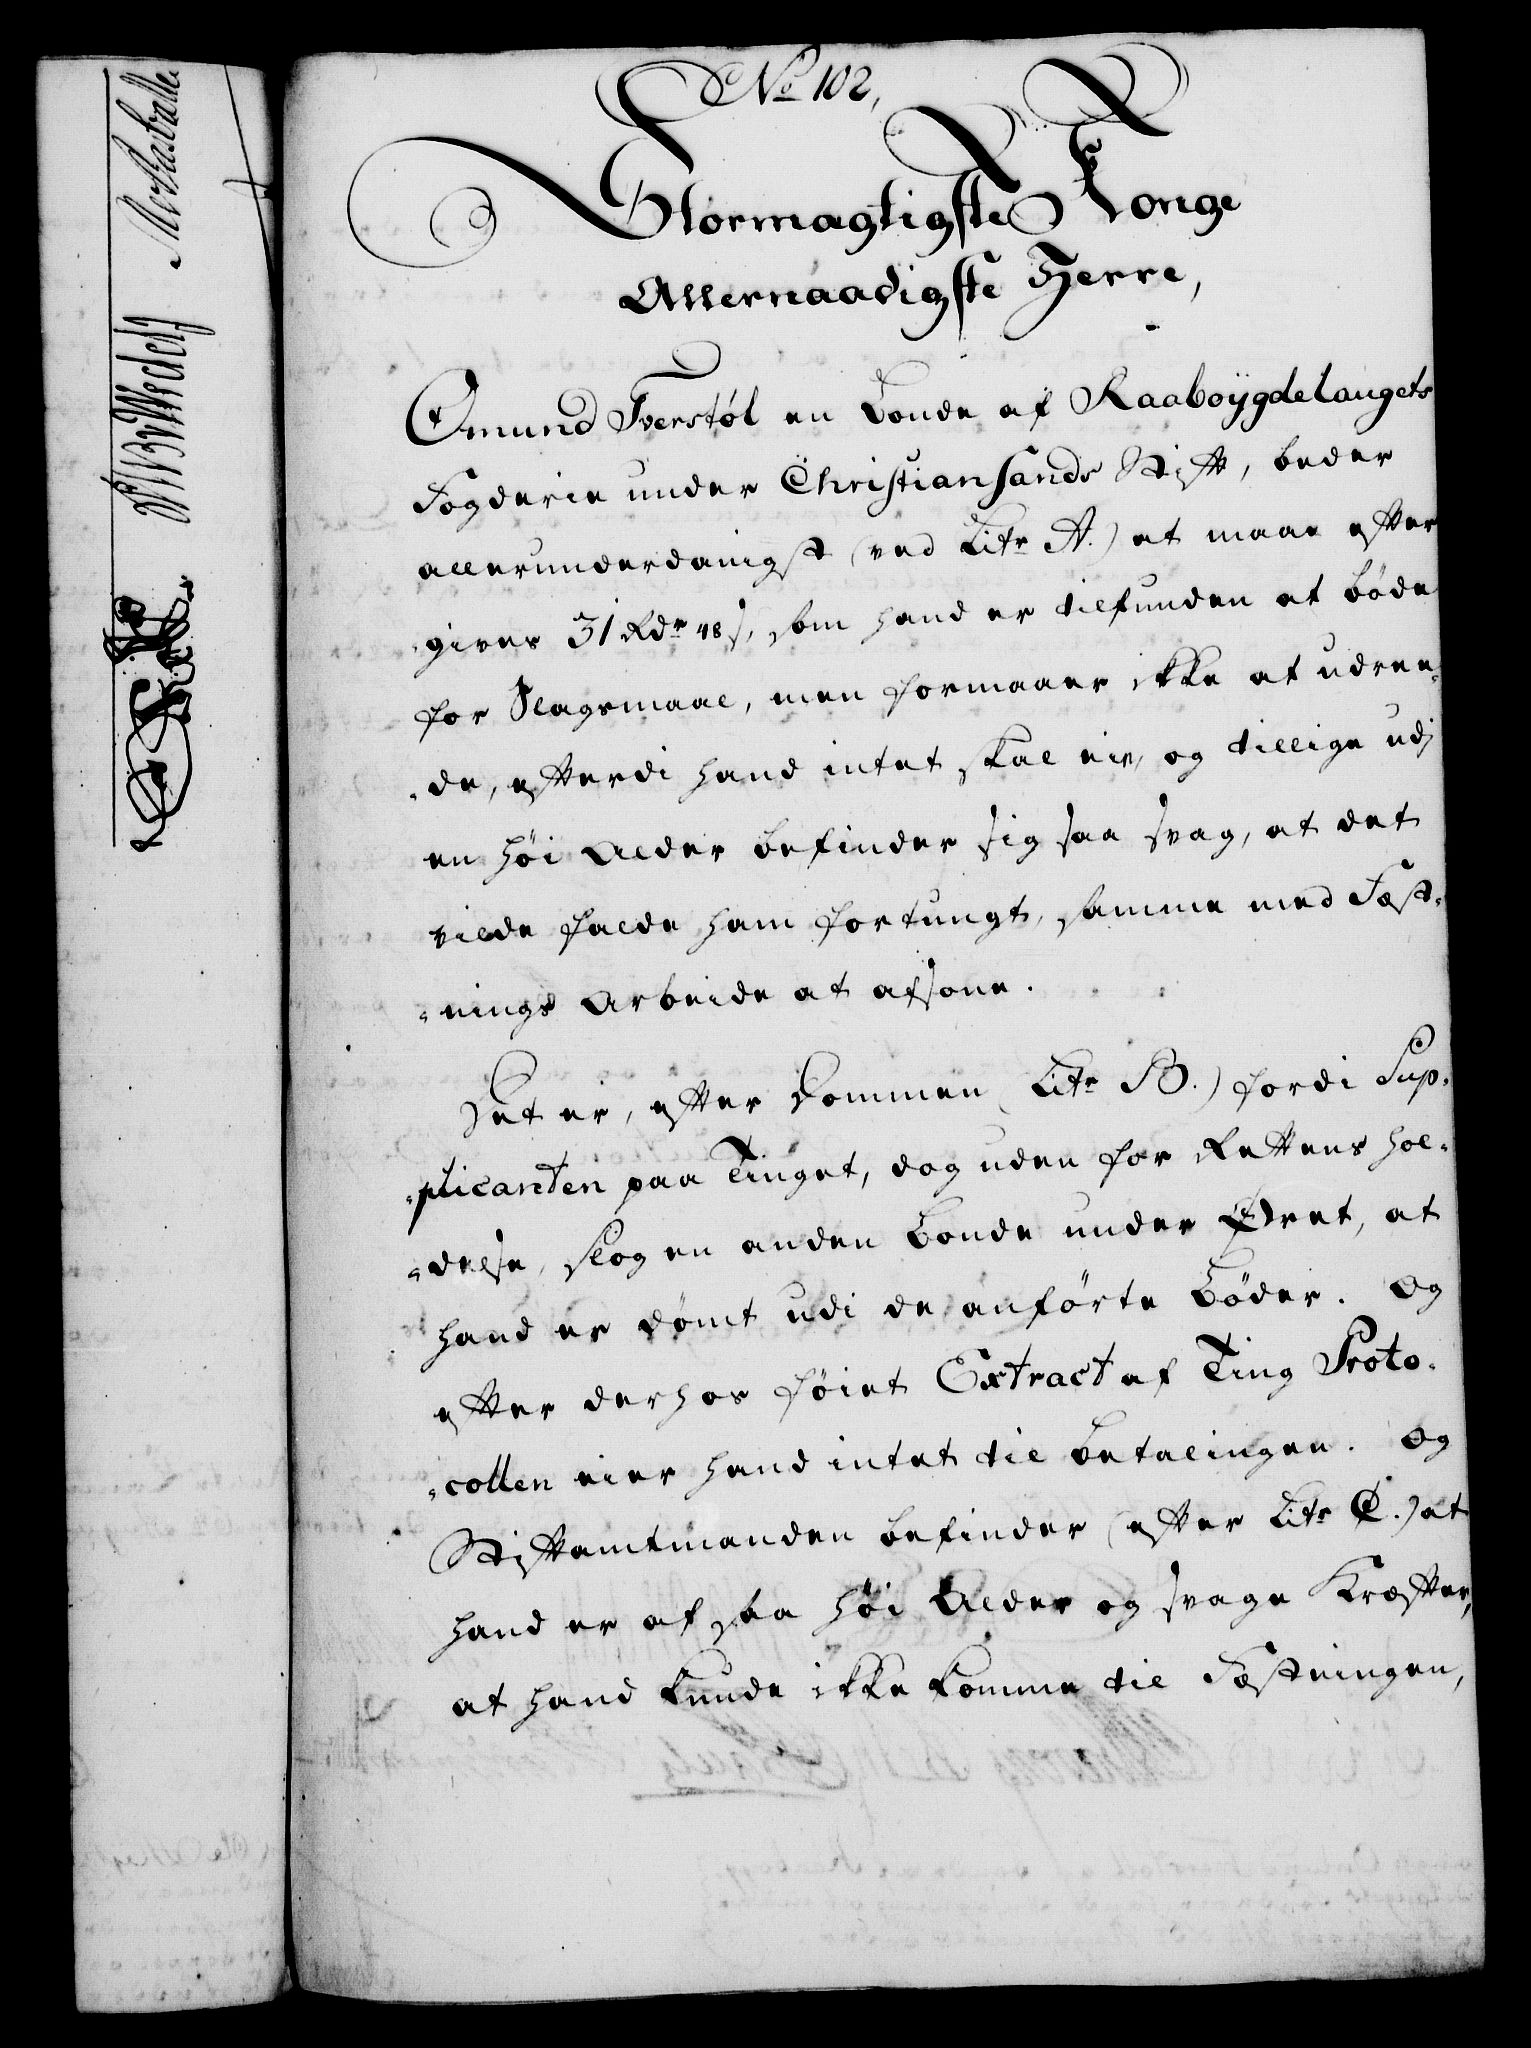 No 102,
Stormagtigste Konge
Allernaadigste Herre,
Omund Tverstøl en Bonde af Raaboÿgdelaugets
Fogderie under Christiansands Stift, beder
allerunderdanigst (ved Litr A.) at maae efter¬
¬gives 31 Rdr 48 s, som hand er tilfunden at bøde
for Slagsmaal, men formaaer ikke at udree¬
¬de, efterdi hand intet skal eie, og tillige udj
en høi Alder befinder sig saa svag, at det
vilde falde ham fortungt, samme med Fæst¬
¬nings Arbeide at afsone.
Det er, efter Dommen (Litr B.) fordi Sup¬
¬plicanten paa Tinget, dog uden for Rettens hol¬
¬delse, slog en anden Bonde under Øret, at
hand er dømt udi de anførte Bøder. Og
efter derhos føiet Extract af Ting Proto¬
¬collen eier hand intet til Betalingen. Og
Stiftamtmanden befinder (efter Litr C.) at
hand er af saa høi Alder og svage Kræfter,
at hand kunde ikke komme til Fæstningen,